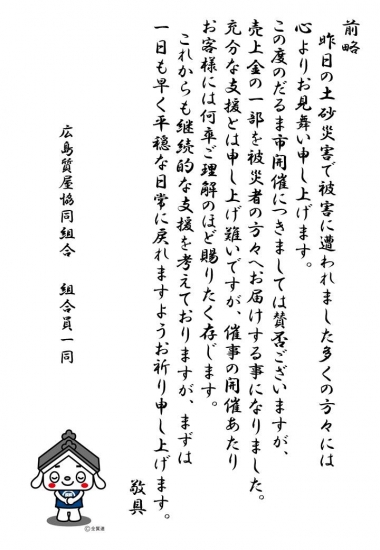 前略
昨日の土砂災害で被害に遭われました多くの方々には
心よりお見舞い申し上げます。
この度のだるま市開催につきましては賛否ございますが、
売上金の一部を被災者の方々へお届けする事になりました。
充分な支援とは申し上げ難いですが、催事の開催あたり
お客様には何卒ご理解のほど賜りたく存じます。
これからも継続的な支援を考えておりますが、まずは
一日も早く平穏な日常に戻れますようお祈り申し上げます。
敬具
広島質屋協同組合 組合員一同
©全質連